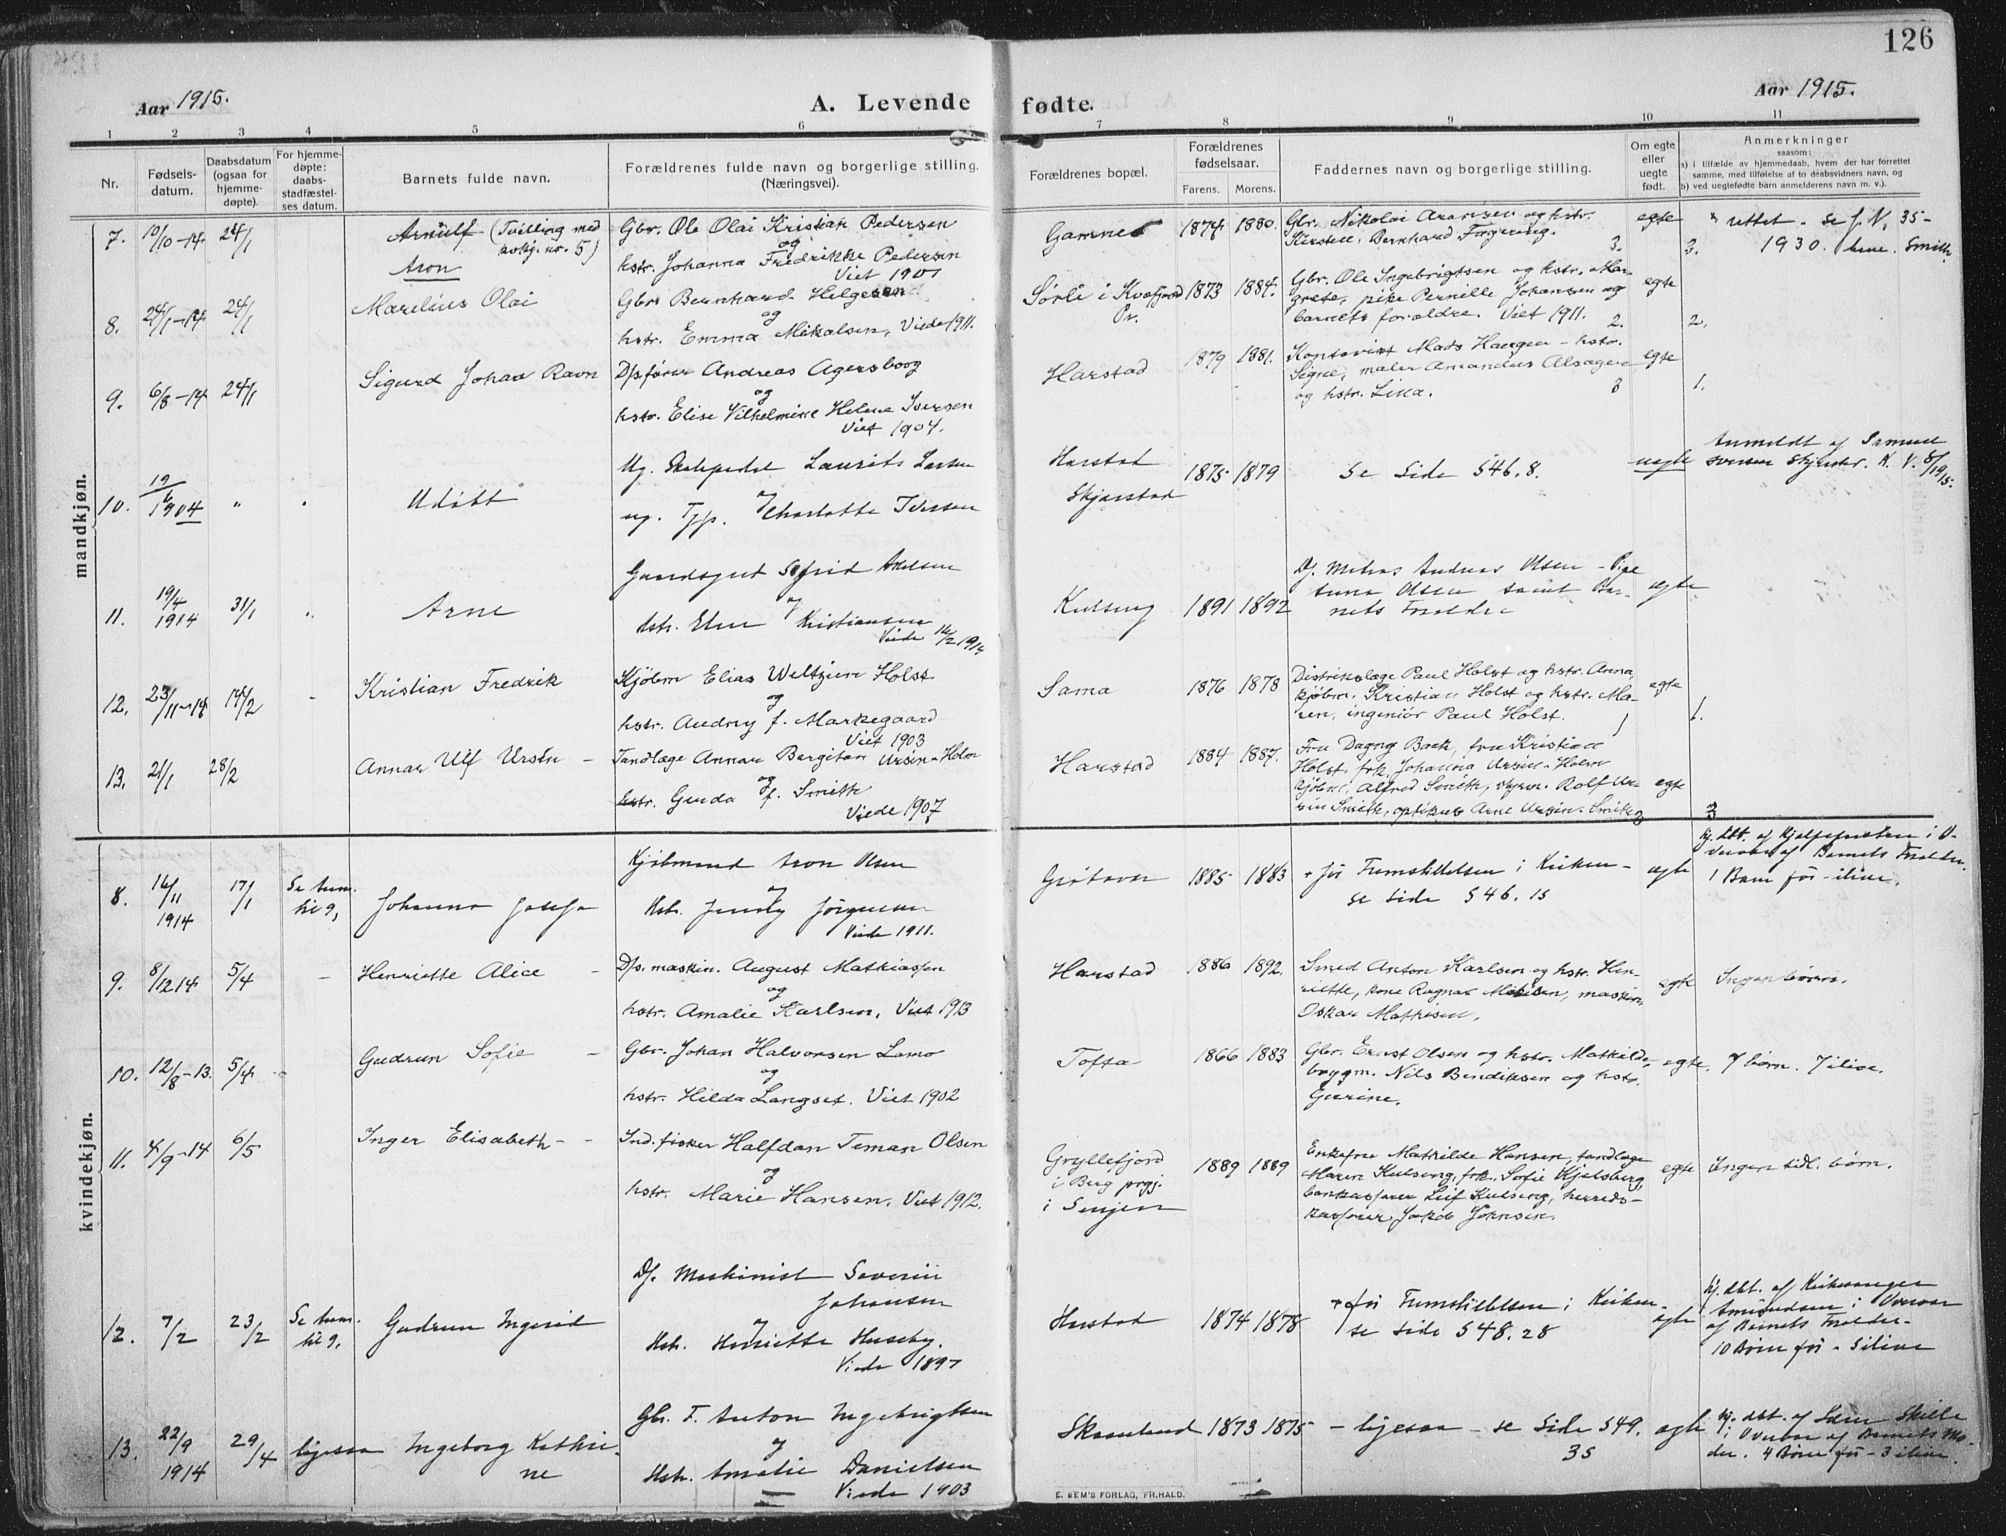 126
Aar 1915.
A. Levende fødte.
Aar 1915.
1 2 3 4 5 6 7 8 9 10 11
Nr.
Fødsels-
datum.
Daabsdatum
(ogsaa for
hjemme-
døpte).
For hjemme-
døpte:
daabs-
stadfæstel-
ses datum.
Barnets fulde navn.
Forældrenes fulde navn og borgerlige stilling.
(Næringsvei).
Forældrenes bopæl.
Forældrenes
fødselsaar.
Farens. Morens.
Faddernes navn og borgerlige stilling.
Om egte
eller
uegte
født.
Anmerkninger
saasom:
a) i tilfælde av hjemmedaab, hvem der har forrettet
samme, med tilføielse af to daabsvidners navn, og
b) ved uegtefødte barn anmelderens navn m. v.).
mandkjøn.
7. 10/10-14 24/1 Arnulf (Tvilling med
kvkj. nr. 5)
Aron
Gbr. Ole Olai Kristian Pedersen
og
hstr. Johanna Fredrikke Pedersen
Viet 1901
Gamnes 1874 1880. Gbr. Nikolai Aronsen og hstr.
Kirsten, Bernhard Fagereng.
3.
egte
rettet - se J. N. 35-
3. 1930. Smith
8. 24/1-14 24/1 Marelius Olai
Gbr. Bernhard Helgesen
og
hstr. Emma Mikalsen, Viede 1911.
Sørli i Kvæfjord
Pr.
1873 1884.
Gbr. Ole Ingebrigtsen og hstr. Mar-
grete, pike Pernille Johansen og
barnets forældre. Viet 1911.
2.
egte
2.
9. 6/8-14 24/1 Sigurd Johan Ravn
D/sfører Andreas Agersborg
og
hstr. Elise Vilhelmine Helene Iversen
Viet 1904.
Harstad 1879 1881.
Kontorist Mads Haugen - hstr.
Signe, maler Amandus Alsagen
og hstr. Lina.
3
egte
1.
10. 19/6 1904 " " Udöbt
Ug. Laurits Larsen
og
ug. Tjp. Charlotte Iversen
Harstad
Skjærstad
1875 1879 Se Side 546. 8. uegte
Anmeldt af Samuel
Iversen K. V. 8/1915.
11. 19/4 1914 31/1 " Arne
Gaardsgut Sigfrid Axelsen
og
Hstr. Elen Kristiansen
Viede 14/2 1914
Kulseng 1891 1892
Dj. Matros Andreas Olsen - Pige
Anna Olsen samt Bar-
nets Forældre
egte
12. 23/11-14 14/2 - Kristian Fredrik
Kjöbm Elias Weltzien Holst
og
hstr. Audny f. Markegaard
Viet 1903
Sama 1876 1878
Distriktslæge Paul Holst og hstr. Anna,
kjöbm. Kristian Holst og hstr. Ma-
ren, ingeniör Paul Holst.
1
egte
1.
13. 21/1 28/2 Annar Ulf Ursin -
Tandlæge Annar Bergiton Ursin-Holm
og
hstr. Gunda f. Smith
Viede 1907
Harstad 1884 1887.
Fru Dagny Back, fru Kristian
Holst, frk. Johanna Ursin-Holm
kjöbm. Alfred Smith, styrm. Rolf Ur-
sin Smith, optiker Arne Ursin-Smith
3
egte
3
kvindekjøn.
8. 14/11 1914 17/1 Se rum.
til 9,
Johanna Josefa
Kjöbmand Aron Olsen
og
Hstr. Jenny Jörgensen
Viede 1911.
Grötavær 1885 1883
+ för Fremstillelsen i Kirken -
se side 546. 15
egte
hj. dbt. af Hjelpepresten i O-
vervær af Barnets Forældre.
1 Barn för - ilive.
9. 8/12 14 5/4 - Henriette Alice -
D/s. maskin. August Mathiassen
og
hstr. Amalie Karlsen, Viet 1913
Harstad 1886 1892.
Smed Anton Karlsen og hstr. Hen-
riette, kone Ragna Mathisen, maskin.
Oskar Mathisen.
egte Ingen börn.
10. 12/8-13. 5/4 - Gudrun Sofie -
Gbr. Johan Halvorsen Lamo
og
hstr. Hilda Langset. Viet 1902
Tofta 1866 1883
Gbr. Ernst Olsen og hstr. Mathilde,
bygm. Nils Bendiksen og hstr.
Gurine.
egte. 7 börn. 7 ilive.
11. 4/9-14 6/5 Inger Elisabeth - -
Ind. fisker Halfdan Teman Olsen
og
hstr. Marie Hansen. Viet 1912.
Gryllefjord
i Berg prgj.
i Senjen
1889 1889
Enkefrue Mathilde Hansen, tandlæge
Maren Kulseng, frk. Sofie Kjelsberg,
bankasserer Leif Kulseng, herreds-
kasserer Jakob Johnsen.
egte Ingen tidl. börn.
12. 7/2 23/2 Se rum.
til 9.
Gudrun Ingerid
D/s. Maskinist Severin
Johansen
og
Hstr. Henriette Huseby.
Viede 1897
Harstad 1874 1878
+ för Fremstillelsen i Kirken.
se side 548. 28
egte
hj. dbt. af Kirkesanger
Amundsen i Overvær
af Barnets Forældre-
10 Börn för - 5 ilive
13. 22/9 1914 29/4 ligesaa Ingeborg Kathri-
ne
Gbr. F. Anton Ingebrigtsen
og
Hstr. Amalie Danielsen
Viede 1903
Skaanland 1873 1875
- ligesaa - se Side 549.
35
egte
hj. dbt. af Sam Skille
i Overvær af Barnets Mo-
der. 4 Börn för - 3 ilive.
E. SEM'S FORLAG, FR.HALD.